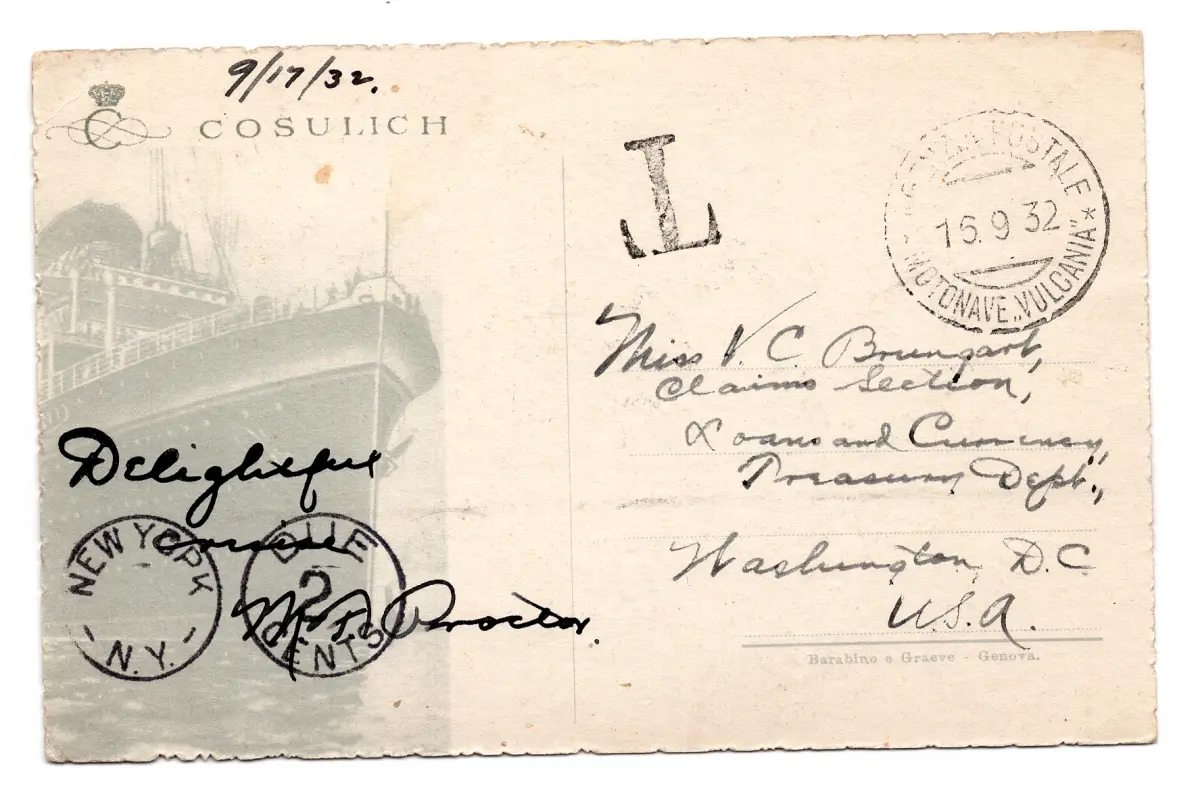 9/17/32.
COSULICH
T
POSTALE
MOTONAVE „VULCANIA"
16.9 32
Miss V. C. Brungart,
Claims Section,
Loans and Currency,
Treasury Dept.,
Washington D.C.
U.S.A.
Barabino e Graeve - Genova.
Delightful
cruise
NEW YORK
N.Y.
DUE
2
CENTS
Proctor.